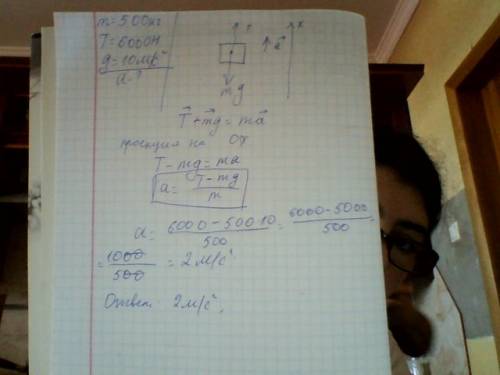 m = 500кг
T = 6000Н
g = 10м/с²
a - ?
T
a⃗
x
mg
T⃗ + m⃗g = ma⃗
проекция на OX
T - mg = ma
a = (T - mg)/m
a = (6000 - 500·10)/500 = (6000 - 5000)/500 =
= 1000/500 = 2 м/с²
Ответ: 2м/с²,